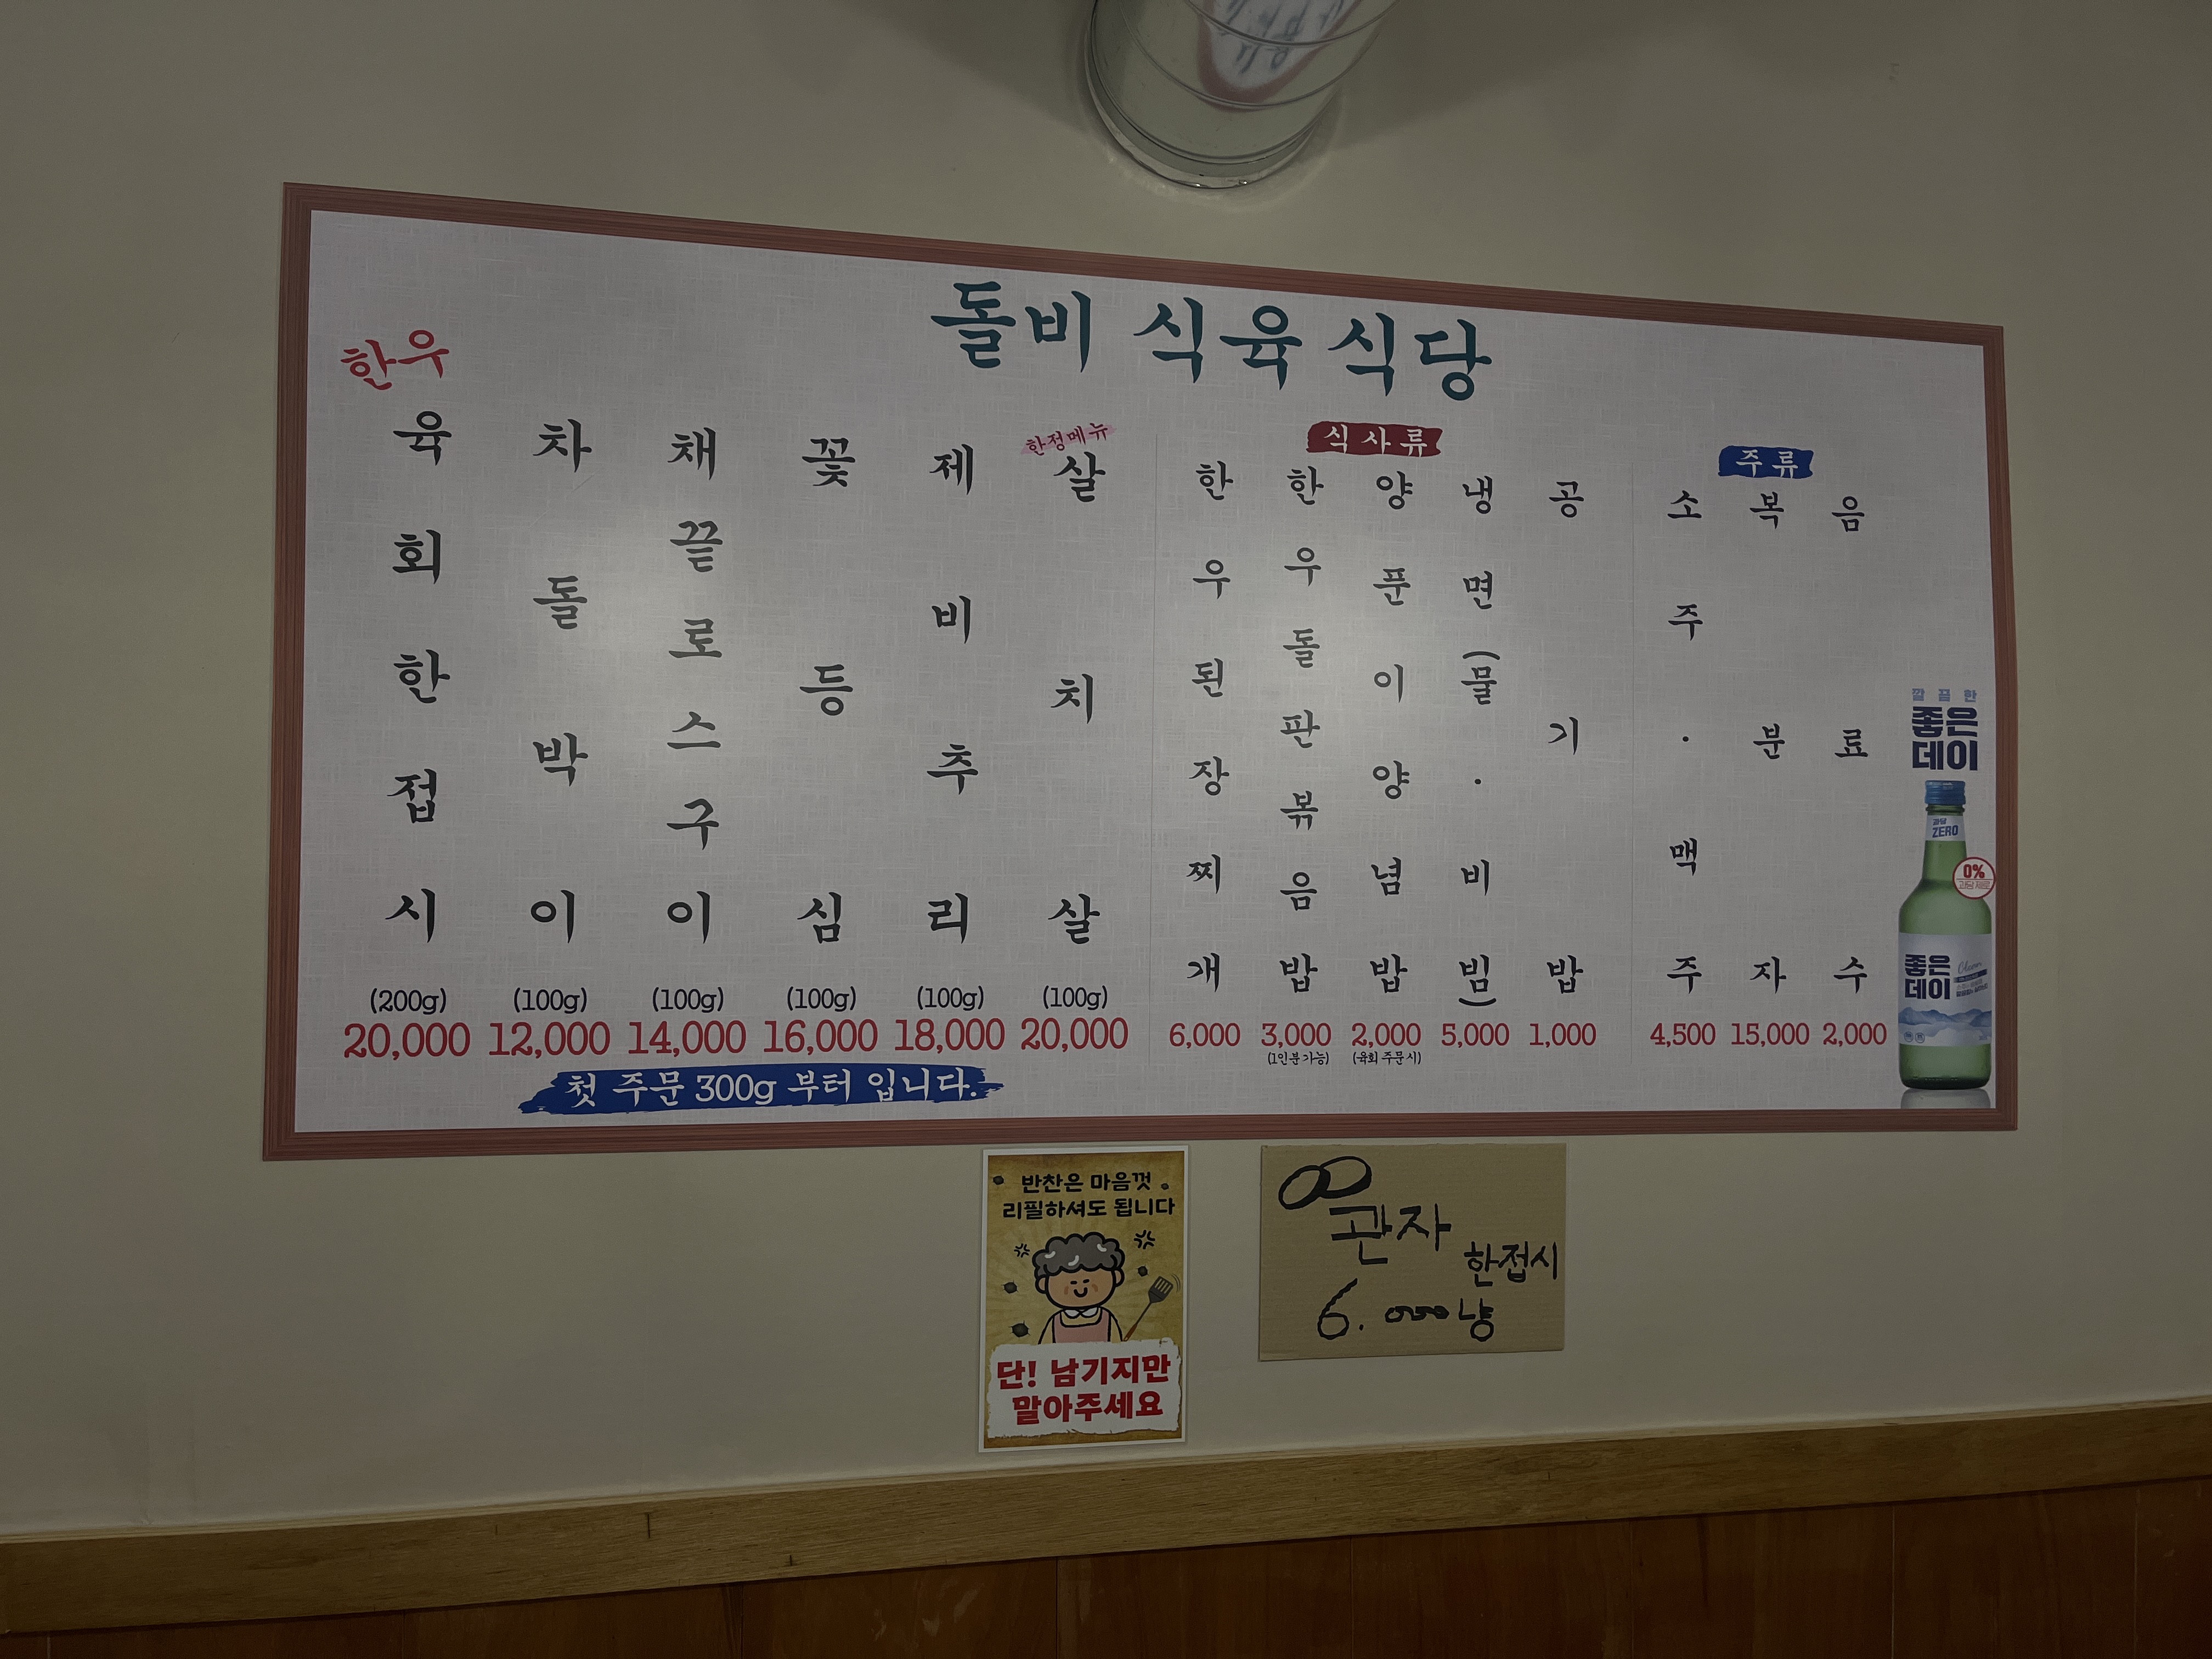 돌비 식육 식당
한우
육회한접시
(200g)
20,000
차돌박이
(100g)
12,000
채끝로스구이
(100g)
14,000
꽃등심
(100g)
16,000
제비추리
(100g)
18,000
한정메뉴
살치살
(100g)
20,000
첫 주문 300g 부터 입니다.
식사류
한우된장찌개
6,000
한우돌판볶음밥
3,000
(1인분 가능)
양푼이양념밥
2,000
(육회 주문시)
냉면(물·비빔)
5,000
공기밥
1,000
주류
소주·맥주
4,500
복분자
15,000
음료수
2,000
깔끔한
좋은
데이
과당
ZERO
0%
과당 제로
좋은
데이
반찬은 마음껏
리필하셔도 됩니다
단! 남기지만
말아주세요
관자
한접시
6.000냥